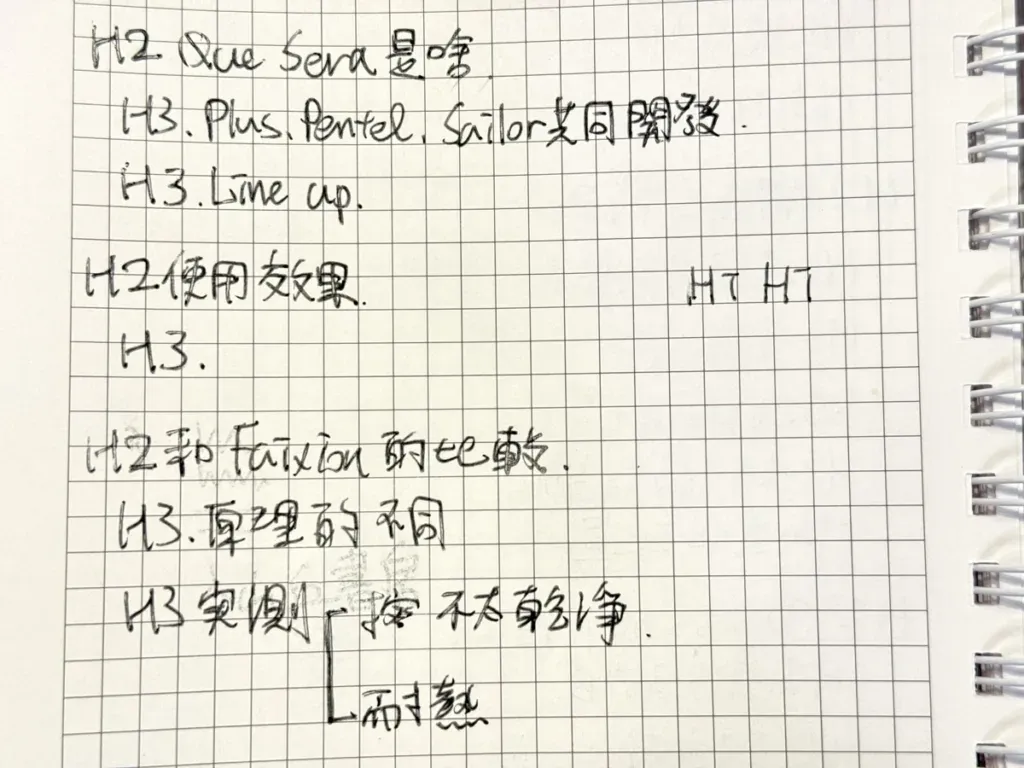 H2 Que Sera 是啥.
H3. Plus. Pentel. Sailor共同開發.
H3. Line up.
H2 使用效果.
HT HT
H3.
H2 和 Frixion 的比較.
H3. 原理的不同
H3 実測 擦不太乾净.
耐熱